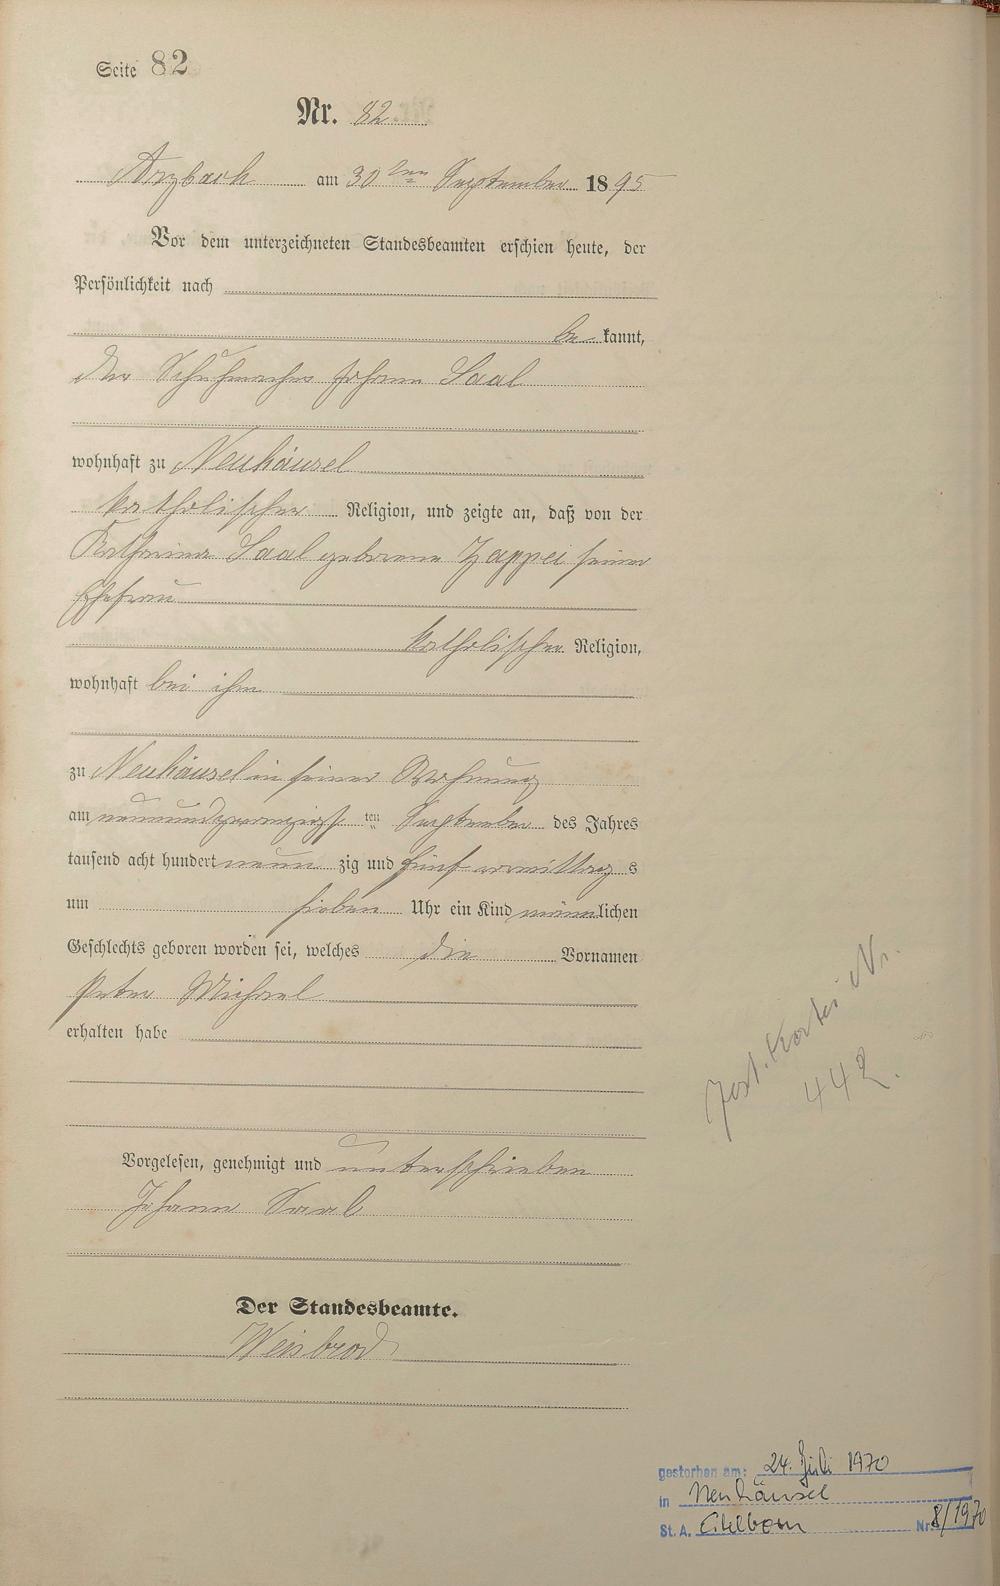 Seite 82
Nr. 82
Arzbach am 30ten September 1895
Vor dem unterzeichneten Standesbeamten erschien heute, der
Persönlichkeit nach
bekannt,
der Schuhmacher Johann Saal
wohnhaft zu Neuhäusel
katholischer Religion, und zeigte an, daß von der
Katharina Saal geborene Zappei seiner
Ehefrau
katholischer Religion,
wohnhaft bei ihm
zu Neuhäusel in seiner Wohnung
am neunundzwanzigsten September des Jahres
tausend acht hundert neunzig und fünf vormittags
um sieben Uhr ein Kind männlichen
Geschlechts geboren worden sei, welches die Vornamen
Peter Michael
erhalten habe
Vorgelesen, genehmigt und unterschrieben
Johann Saal
Der Standesbeamte.
Weisbrod
Kartei Nr.
442.
gestorben am: 24. Juli 1970
in Neuhäusel
St. A. Eitelborn Nr. 8/1970